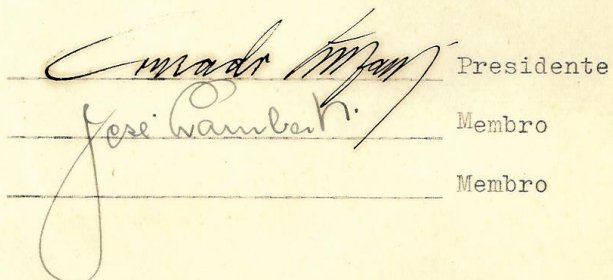 Conrado Presidente
José Lamberti. Membro
Membro